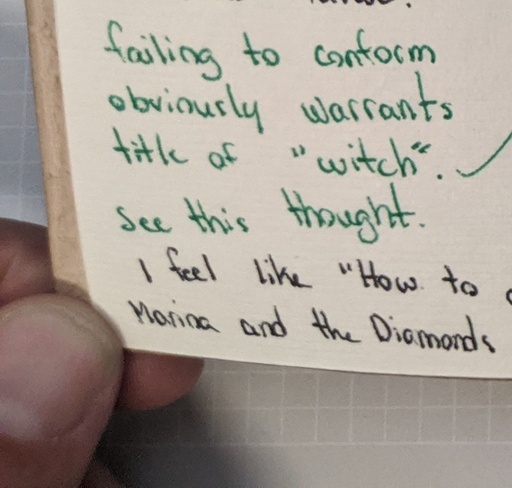 failing to conform
obviously warrants
title of "witch".
see this thought.
I feel like "How to
Marina and the Diamonds